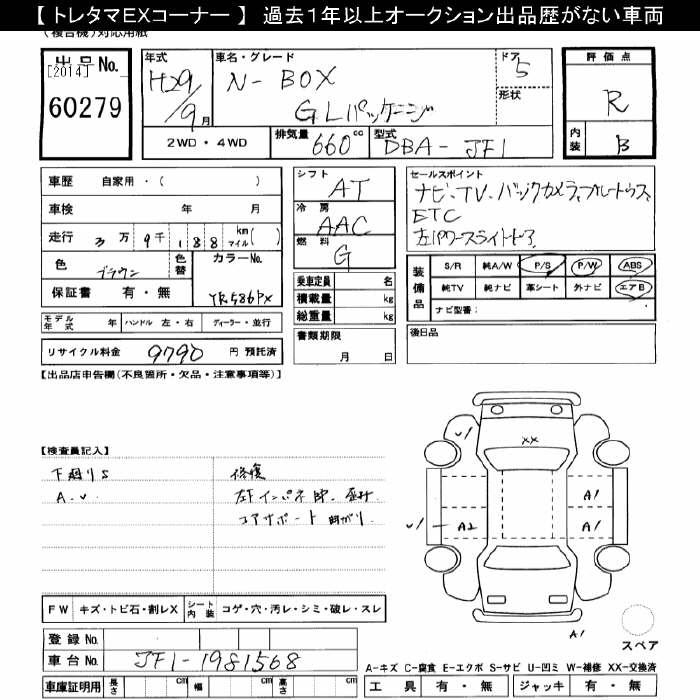 【 トレタマEXコーナー 】 過去1年以上オークション出品歴がない車両
(複合機)対応用紙
出品No.
[2014]
60279
年式
H29/9月
車名・グレード
N-BOX
GLパッケージ
ドア
5
形状
2WD・4WD
排気量
660cc
型式
DBA-JF1
評価点
R
内装
B
車歴 自家用・( )
車検 年 月
走行 3万9千188 km マイル( )
色
ブラウン
色替
カラーNo.
YR586PX
保証書 有・無
モデル年式 年
ハンドル 左・右
ディーラー・並行
リサイクル料金 9790 円 預託済
シフト
AT
冷房
AAC
燃料
G
乗車定員 名
積載量 kg
総重量 kg
書類期限
月 日
セールスポイント
ナビ、TV、バックカメラ、ブルートゥス
ETC
左パワースライドドア
装備品
S/R 純A/W P/S P/W ABS
純TV 純ナビ 革シート 外ナビ エアB
ナビ型番:
後日品
【出品店申告欄(不良箇所・欠品・注意事項等)】
【検査員記入】
下廻りS
修復
コアサポート曲がり
FW キズ・トビ石・割レX
シート内装 コゲ・穴・汚レ・シミ・破レ・スレ
登録 No.
車台 No. JF1-1981568
車庫証明用 長さ cm 幅 cm 高さ cm
XX
A1
A2
A1
A1
スペア
A-キズ C-腐食 E-エクボ S-サビ U-凹ミ W-補修 XX-交換済
工具 有・無 ジャッキ 有・無